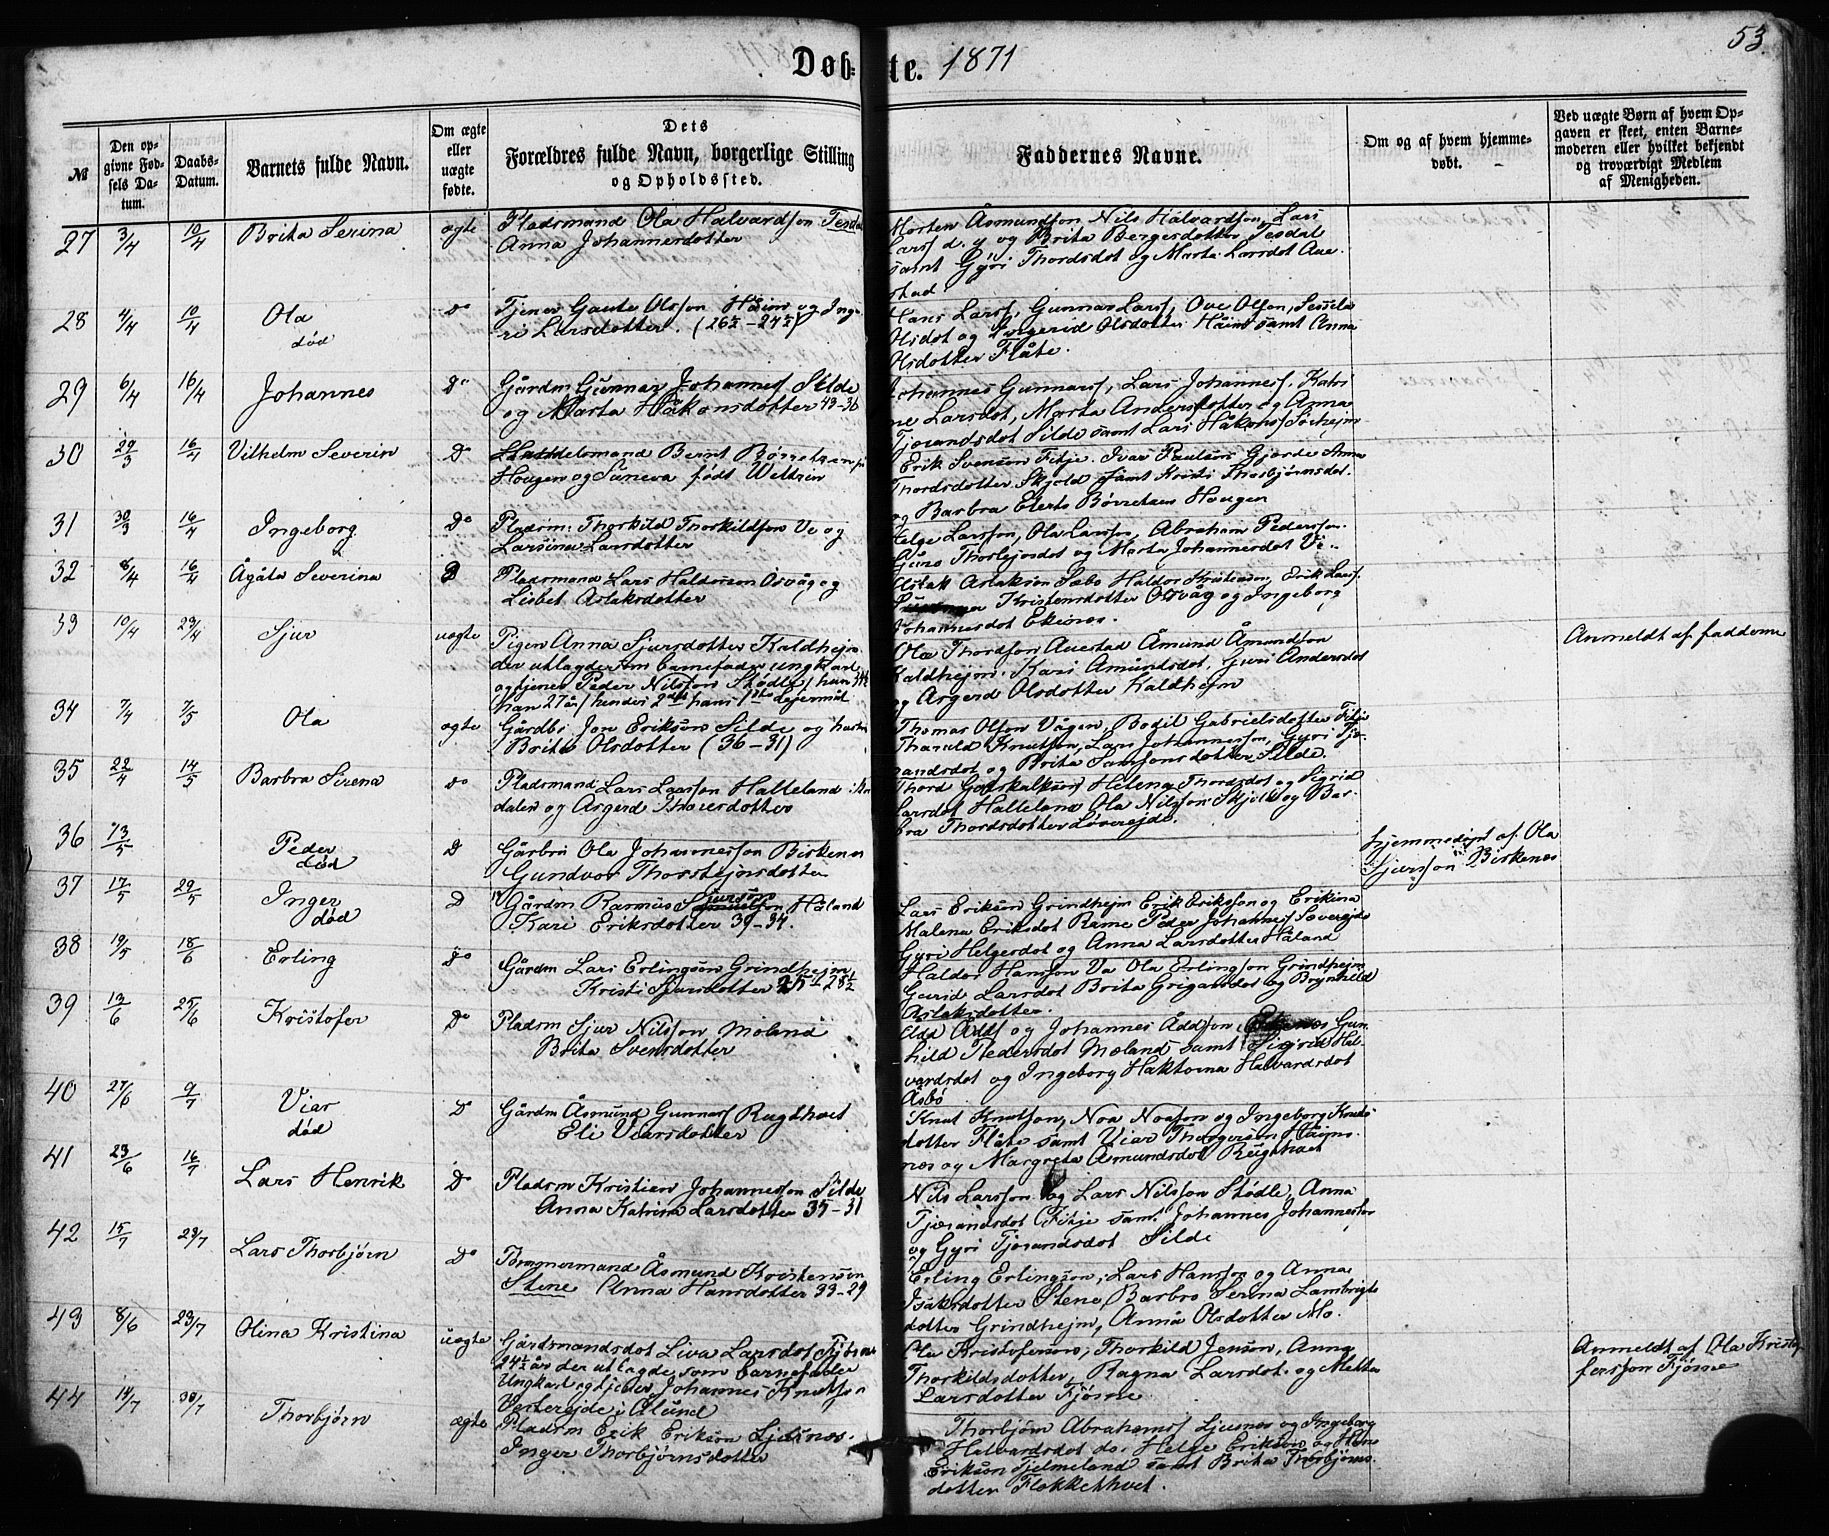 53.
Døbte. 1871
№
Den opgivne Fødsels Datum.
Daabs-Datum.
Barnets fulde Navn.
Om ægte eller uægte fødte.
Dets Forældres fulde Navn, borgerlige Stilling og Opholdssted.
Faddernes Navne.
Om og af hvem hjemmedøbt.
Ved uægte Børn af hvem Opgaven er skeet, enten Barnemoderen eller hvilket bekjendt og troværdigt Medlem af Menigheden.
27 3/4 10/4 Brita Serina ægte Pladsmand Ola Halvardson Tesdal
Anna Johannesdotter
Morten Åsmundson, Nils Halvardson, Lars
Larss d. y og Brita Bergesdotter Tesdal
samt Gyri Thordsdot og Marta Larsdot Aue
stad.
28 4/4 10/4 Ola død do Tjener Gaute Olsson Håim og Inge
ri Larsdotter. (26½-24½)
Hans Larss, Gunnar Larss, Ove Olson, Sessela
Olsdot og Ingerid Olsdotter Håim samt Anna
Olsdotter Flåte.
29 6/4 16/4 Johannes Do Gårdm Gunnar Johanness Silde
og Marta Håkonsdotter 43-36
Johannes Gunnarss, Lars Johanness, Katri
ne Larsdot, Marta Andersdotter og Anna
Tjørandsdot Silde samt Lars Håkonss Søhejm
30 29/3 16/4 Vilhelm Severin Do Handelsmand Bernt Børretzen på
Hougen og Sæneva født Weltzin
Erik Svenson Fitje, Ivar Paulson Gjærde Anna
Thordsdotter Skjold samt Kristi Thorbjørnsdot.
og Barbra Elerts Børretzen Hougen
31 30/3 16/4 Ingeborg Do Pladsm: Thorkild Thorkildson Ve og
Larsina Larsdotter
Helge Larsson, Ola Larsson, Abraham Pedersson.
Guro Thorlejvsdot og Marta Johannesdot Ve.
32 8/4 16/4 Ågåta Severina D Pladsmand Lars Haldorson Osvåg og
Lisbet Aslaksdotter
Aslak Aslakson Sæbø Haldor Kristenson, Erik Larss.
Kristensdotter Osvåg og Ingeborg
Johannesdot Ekenes.
33 10/4 23/4 Sjur uægte Pigen Anna Sjursdotter Kaldhejm
der utlagde som barnefader ungkarl
og tjener Peder Nilsson Stødle / hun 34½
han 27 år / hendes 2det hans 1ste lejermål
Ola Thordson Auestad Åmund Åmundson
Kaldhejm, Kari Åmundsdot, Guri Andersdot
og Asgerd Olsdotter Kaldhejm
Anmeldt af fadderne
34 7/4 7/5 Ola ægte Gårdbr Jon Erikson Silde og hustru
Brita Olsdotter (36-31)
Thomas Olson Vågen, Bodil Gabrielsdotter Fitje
Tharald Knutson, Lars Johannesson, Gyri Tjø-
randsdot og Brita Samsonsdotter Silde.
35 22/4 14/5 Barbra Sirena do Pladsmand Lars Larsson Halteland i
dalen og Asgerd
Thord Gotskalksson, Helena Thordsdot og Sigrid
Larsdot Halteland Ola Nilsson Skjold og Bar-
bra Thordsdotter Løverejde.
36 13/5 Peder død D Gårbr Ola Johannesson Birkenes
Gundvor Thorstejnsdotter
hjemmedøpt af Ola
Sjursson Birkenes
37 17/5 29/5 Inger død D Gårdm Rasmus Sjurson Håland
Kari Eriksdotter 39-34.
Lars Erikson Grindhejm Erik Eriksson og Erikina
Malena Eriksdot Rame Peder Johanness Søverejde
Gyri Helgesdot og Anna Larsdotter Håland
38 19/5 18/6 Erling Do Gårdm Lars Erlingson Grindhejm
Kristi Sjursdotter 25½ 28½
Haldor Hanson Va Ola Erlingson Grindhejm
Gurid Larsdot Brita Grigarsdot og Brynhild
Aslaksdotter.
39 13/6 25/6 Kristofer Do Pladsm Sjur Nilsson Moland
Brita Svensdotter
Ådd Ådds og Johannes Åddson Ekenes Gun-
hild Pedersdot Moland samt Sigrid Hal-
vardsdot og Ingeborg Haktorna Halvardsdot
Åsbø
40 27/6 9/7 Viar død D Gårdm Åsmund Gunnars Rugthvet
Eli Viarsdotter
Knut Knutson, Noa Noason og Ingeborg Knuds-
dotter Flåte samt Viar Thorgerson Håim-
nes og Margreta Åsmundsdot Rugthvet
41 23/6 16/7 Lars Henrik Do Pladsm Kristian Johannesson Silde
Anna Katrina Larsdotter 35-31
Nils Larsson og Lars Nilsson Stødle, Anna
Tjørandsdot Fitje samt Johannes Johannesson
og Gyri Tjørandsdot Silde
42 15/7 23/7 Lars Thorbjørn Do Tømmermand Åsmund Kristenson
Stene Anna Hansdotter 33-29
Erling Erlingson, Lars Hansson og Anna
Isaksdotter Stene, Barbro Serina Lambregts-
dotter Grindhejm, Anna Olsdotter Mo.
43 8/6 23/7 Olina Kristina uægte Gårdmandsdot Liva Larsdot Fjøsne
24½ år der utlagde som barnefader
Ungkarl og tjener Johannes Knutson
Vesterejde i Ølund
Ola Kristoferson, Thorkild Jenson, Anna
Thorkildsdotter, Ragna Larsdot og Metta
Larsdotter Fjøsne.
Anmeldt af Ola Kristo-
fersson Fjøsne
44 14/7 30/7 Thorbjørn ægte Pladsm Erik Erikson Ljusnes.
Inger Thorbjørnsdotter
Thorbjørn Abrahams Ljusnes og Ingeborg
Halvardsdot do. Helge Erikson og Hans
Erikson Tjelmeland samt Brita Thorbjørns-
dotter Flokkethvet.